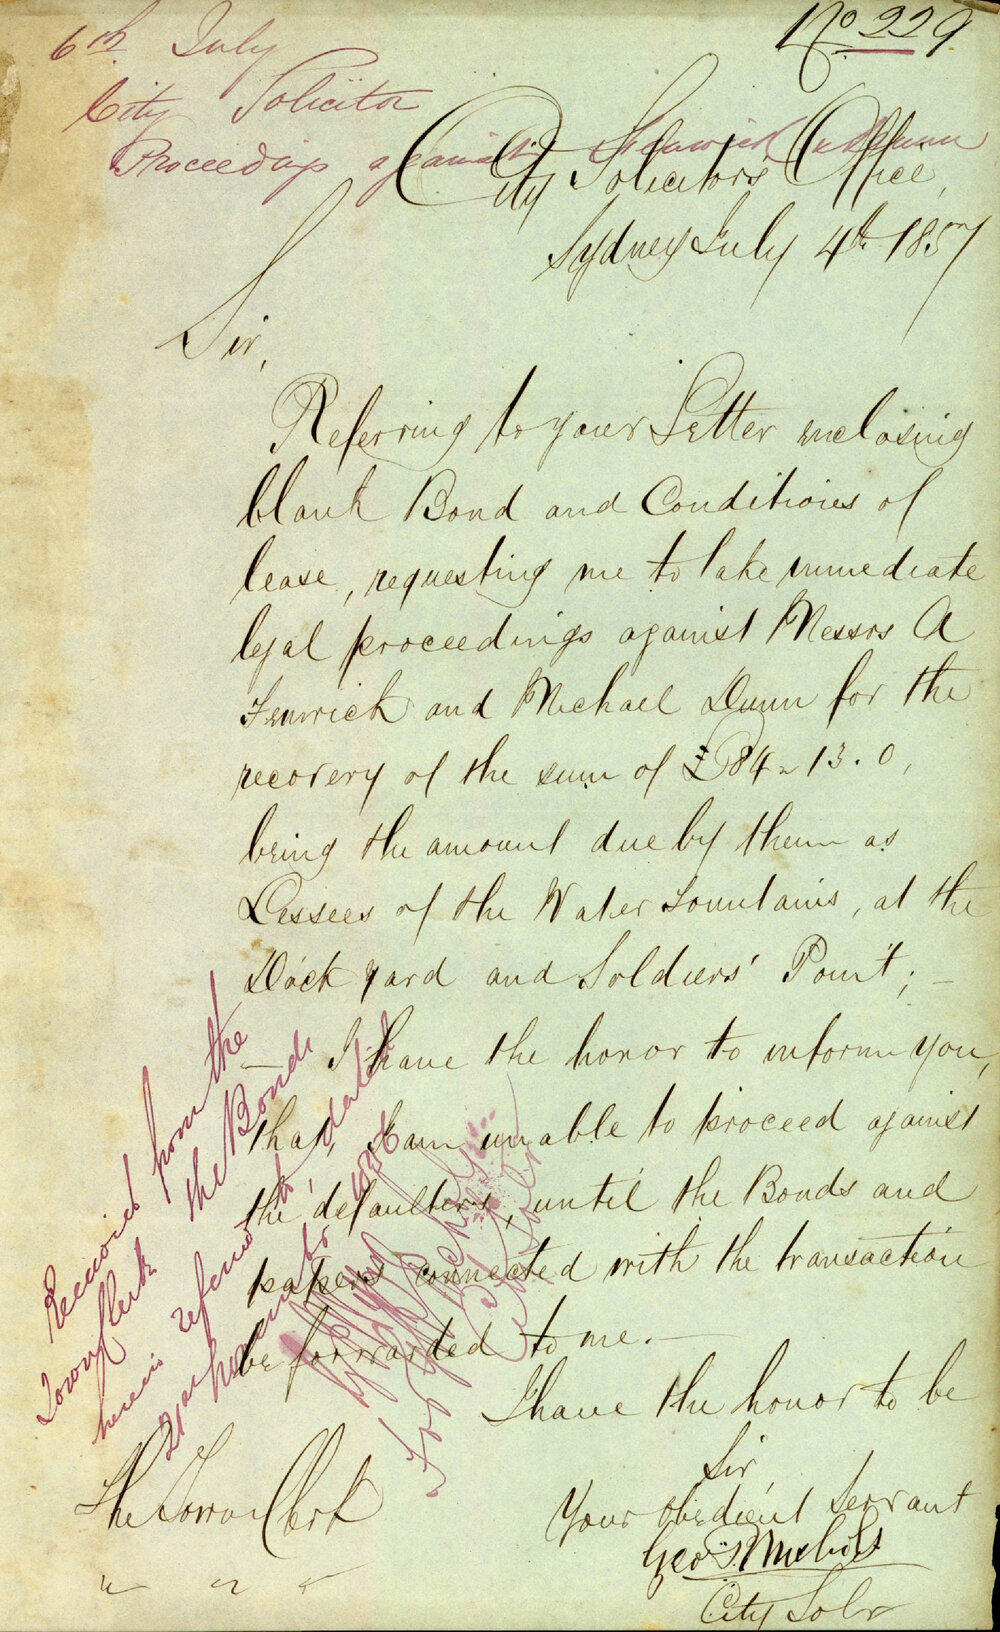 No 229
6th July
City Solicitor
Proceedings against Fenwick & Dunn
City Solicitor's Office,
Sydney July 4th 1857
Sir,
Referring to your Letter enclosing
blank Bond and Conditions of
lease, requesting me to take immediate
legal proceedings against Messrs A
Fenwick and Michael Dunn for the
recovery of the sum of £84-13.0,
being the amount due by them as
Lessees of the Water Fountains, at the
Dock yard and Soldiers' Point; -
- I have the honor to inform you,
that, I am unable to proceed against
the defaulters, until the Bonds and
papers connected with the transaction
be forwarded to me. -
I have the honor to be
Sir
Your obedient Servant
Geo. Nichols
City Solr
The Town Clerk
Received from the
Town Clerk the Bonds
herein referred to, dated
1856
For
City Solr